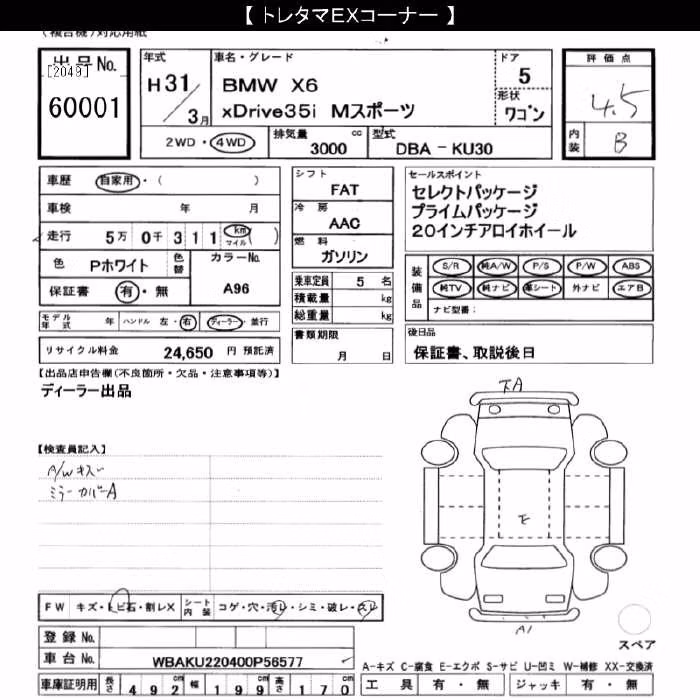 【 トレタマEXコーナー 】
(複合機)対応用紙
出品No.
[2049]
60001
年式
H 31 / 3月
車名・グレード
BMW X6
xDrive35i Mスポーツ
ドア
5
形状
ワゴン
2WD・4WD
排気量
3000 cc
型式
DBA - KU30
評価点
4.5
内装
B
車歴 自家用・( )
車検 年 月
走行 5万 0千 3 1 1 km マイル ( )
色 Pホワイト 色替 カラーNo.
保証書 有・無 A96
モデル年式 年 ハンドル 左・右 ディーラー・並行
リサイクル料金 24,650 円 預託済
シフト
FAT
冷房
AAC
燃料
ガソリン
乗車定員 5 名
積載量 kg
総重量 kg
書類期限
月 日
セールスポイント
セレクトパッケージ
プライムパッケージ
20インチアロイホイール
装備品
S/R 純A/W P/S P/W ABS
純TV 純ナビ 革シート 外ナビ エアB
ナビ型番:
後日品
保証書、取説後日
【出品店申告欄(不良箇所・欠品・注意事項等)】
ディーラー出品
【検査員記入】
A/Wキズ
ミラーカバーA
下A
E
A1
スペア
FW キズ・トビ石・割レX シート内装 コゲ・穴・汚レ・シミ・破レ・スレ
登録No.
車台No. WBAKU220400P56577
車庫証明用 長さ 492 cm 幅 199 cm 高さ 170 cm
A-キズ C-腐食 E-エクボ S-サビ U-凹ミ W-補修 XX-交換済
工具 有・無 ジャッキ 有・無